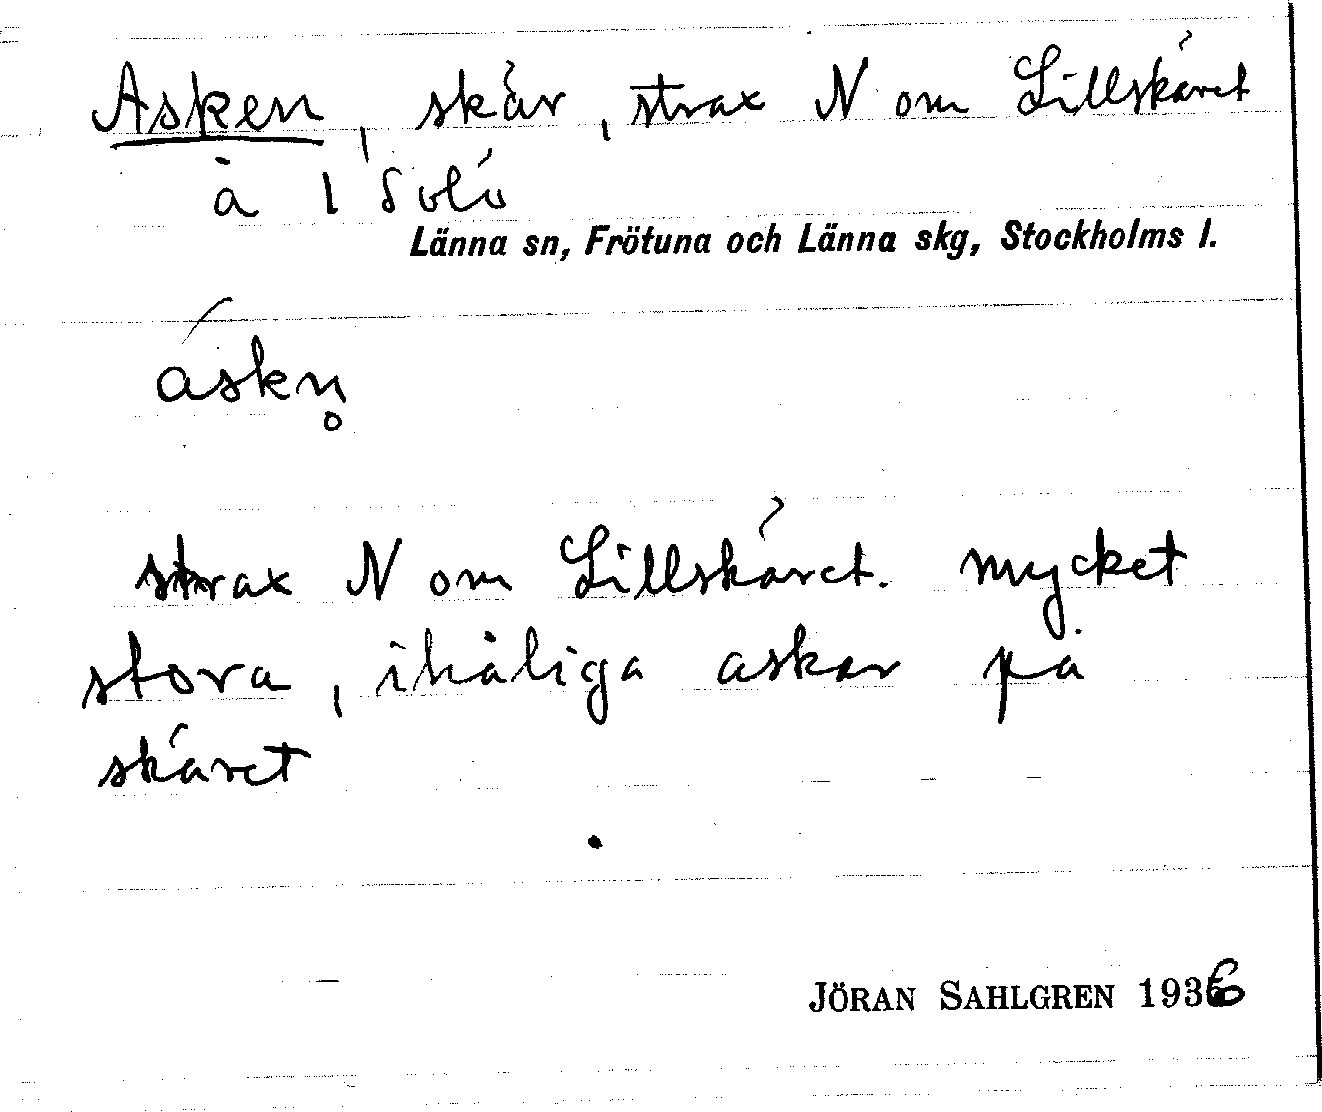 Asken, skär, strax N om Lillskäret
å 1
Länna sn, Frötuna och Länna skg, Stockholms l.
áskn̥
strax N om Lillskäret. Mycket
stora, ihåliga askar på
skäret
JÖRAN SAHLGREN 1936